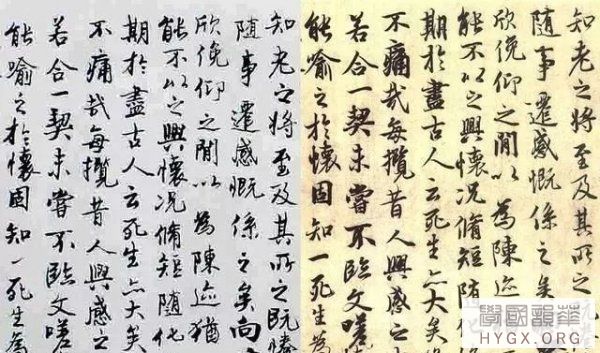 知老之将至及其所之既惓
随事遷感慨係之矣向
欣俛仰之間以為陳迹猶
能不以之興懷况脩短随化
期於盡古人云死生亦大矣
不痛哉每攬昔人興感之
若合一契未嘗不臨文嗟
能喻之於懷固知一死生為
知老之将至及其所之
随事遷感慨係之矣
欣俛仰之間以為陳迹
能不以之興懷况脩短随
期於盡古人云死生亦大矣
不痛哉每攬昔人興感之
若合一契未嘗不臨文嗟
能喻之於懷固知一死生為
學國韻華
HYGX.ORG